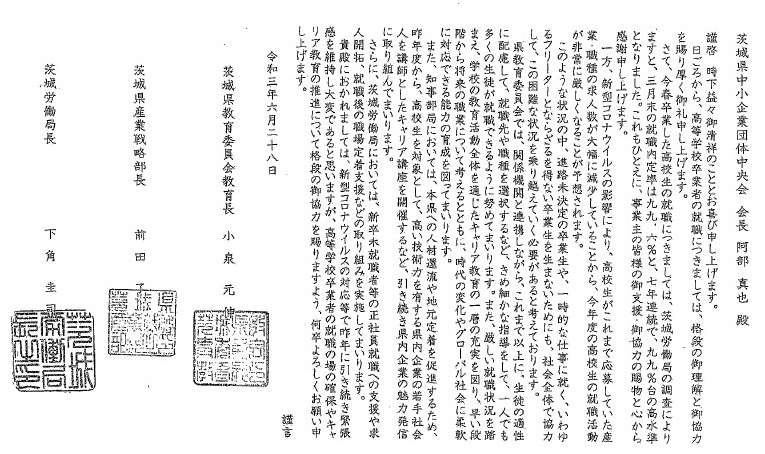 茨城県中小企業団体中央会 会長 阿部 真也 殿
謹啓 時下益々御清祥のこととお喜び申し上げます。
日ごろから、高等学校卒業者の就職につきましては、格段の御理解と御協力
を賜り厚く御礼申し上げます。
さて、今春卒業した高校生の就職につきましては、茨城労働局の調査により
ますと、三月末の就職内定率は九九．六％と、七年連続で、九九％台の高水準
となりました。これもひとえに、事業主の皆様の御支援・御協力の賜物と心から
感謝申し上げます。
一方、新型コロナウイルスの影響により、高校生がこれまで応募していた産
業・職種の求人数が大幅に減少していることから、今年度の高校生の就職活動
が非常に厳しくなることが予想されます。
このような状況の中、進路未決定の卒業生や、一時的な仕事に就く、いわゆ
るフリーターとならざるを得ない卒業生を生まないためにも、社会全体で協力
して、この困難な状況を乗り越えていく必要があると考えております。
県教育委員会では、関係機関と連携しながら、これまで以上に、生徒の適性
に配慮して、就職先や職種を選択するなど、きめ細かな指導をして、一人でも
多くの生徒が就職できるように努めてまいります。また、厳しい就職状況を踏
まえ、学校の教育活動全体を通じたキャリア教育の一層の充実を図り、早い段
階から将来の職業について考えるとともに、時代の変化やグローバル社会に柔軟
に対応できる能力の育成を図ってまいります。
また、知事部局においては、本県への人材還流や地元定着を促進するため、
昨年度から、高校生を対象として、高い技術力を有する県内企業の若手社会
人を講師としたキャリア講座を開催するなど、引き続き県内企業の魅力発信
に取り組んでまいります。
さらに、茨城労働局においては、新卒未就職者等の正社員就職への支援や求
人開拓、就職後の職場定着支援などの取り組みを実施してまいります。
貴殿におかれましては、新型コロナウイルスの対応等で昨年に引き続き緊張
感を維持し大変であると思いますが、高等学校卒業者の就職の場の確保やキャ
リア教育の推進について格段の御協力を賜りますよう、何卒よろしくお願い申
し上げます。
謹言
令和三年六月二十八日
茨城県教育委員会教育長 小泉 元伸
茨城県産業戦略部長 前田
茨城労働局長 下角 圭司
茨城労働局長之印